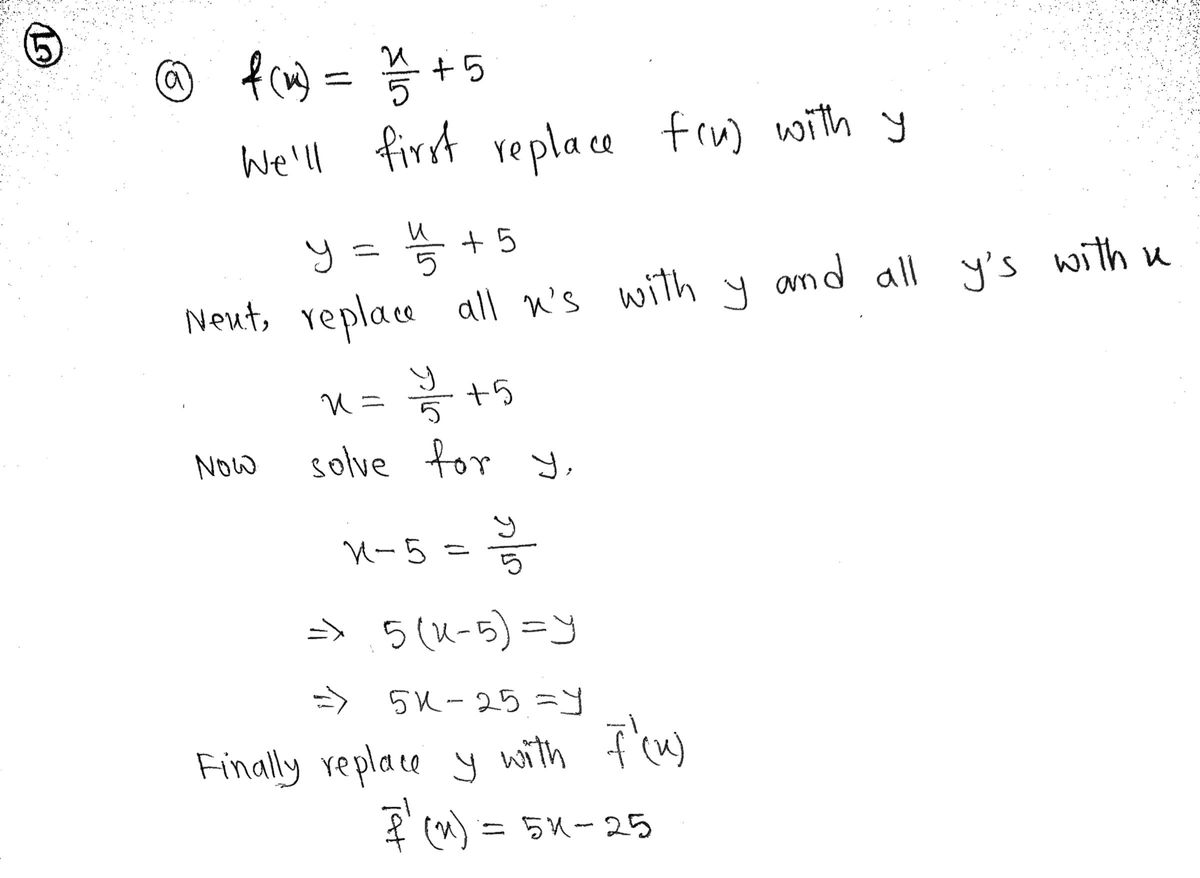 ⑤
ⓐ f(x) = x/5 + 5
We'll first replace f(x) with y
y = x/5 + 5
Next, replace all x's with y and all y's with x
x = y/5 + 5
Now solve for y.
x - 5 = y/5
=> 5(x-5) = y
=> 5x - 25 = y
Finally replace y with f⁻¹(x)
f⁻¹(x) = 5x - 25